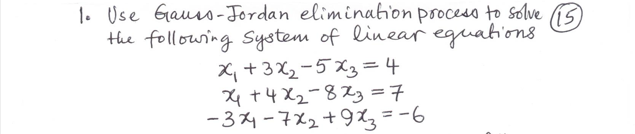 1. Use Gauss-Jordan elimination process to solve (15)
the following system of linear equations
x₁ + 3x₂ - 5x₃ = 4
x₁ + 4x₂ - 8x₃ = 7
-3x₁ - 7x₂ + 9x₃ = -6